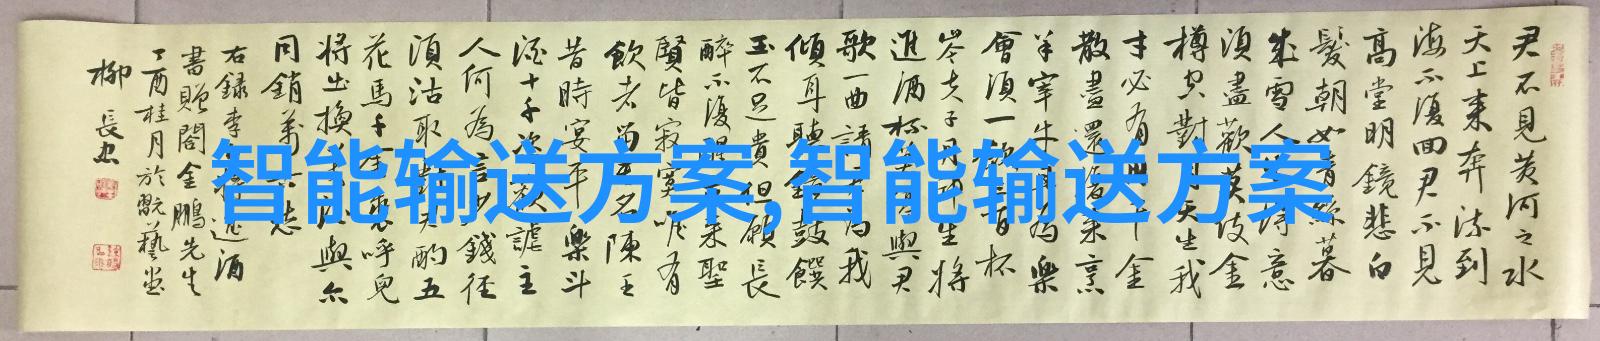 智能输送方案,智能输送方案
君不見黄河之水
天上来奔流到
海不復回君不見
高堂明鏡悲白
髮朝如青絲暮
成雪人生得意
須盡歡莫使金
樽空對月天生我
才必有用千金
散盡還復来烹
羊宰牛且為樂
會須一飲三百杯
岑夫子丹邱生將
進酒杯莫停與君
歌一曲請君為我
傾耳聽鐘鼓饌
玉不足貴但願長
醉不復醒古来聖
賢皆寂寞唯有
飲者留其名陳王
昔時宴平樂斗
酒十千恣歡謔主
人何為言少錢徑
須沽取對君酌五
花馬千金裘呼兒
將出換美酒與尔
同銷萬古愁
右録李白將進酒
書贈閤金鵬先生
丁酉桂月於翫藝堂
柳長忠